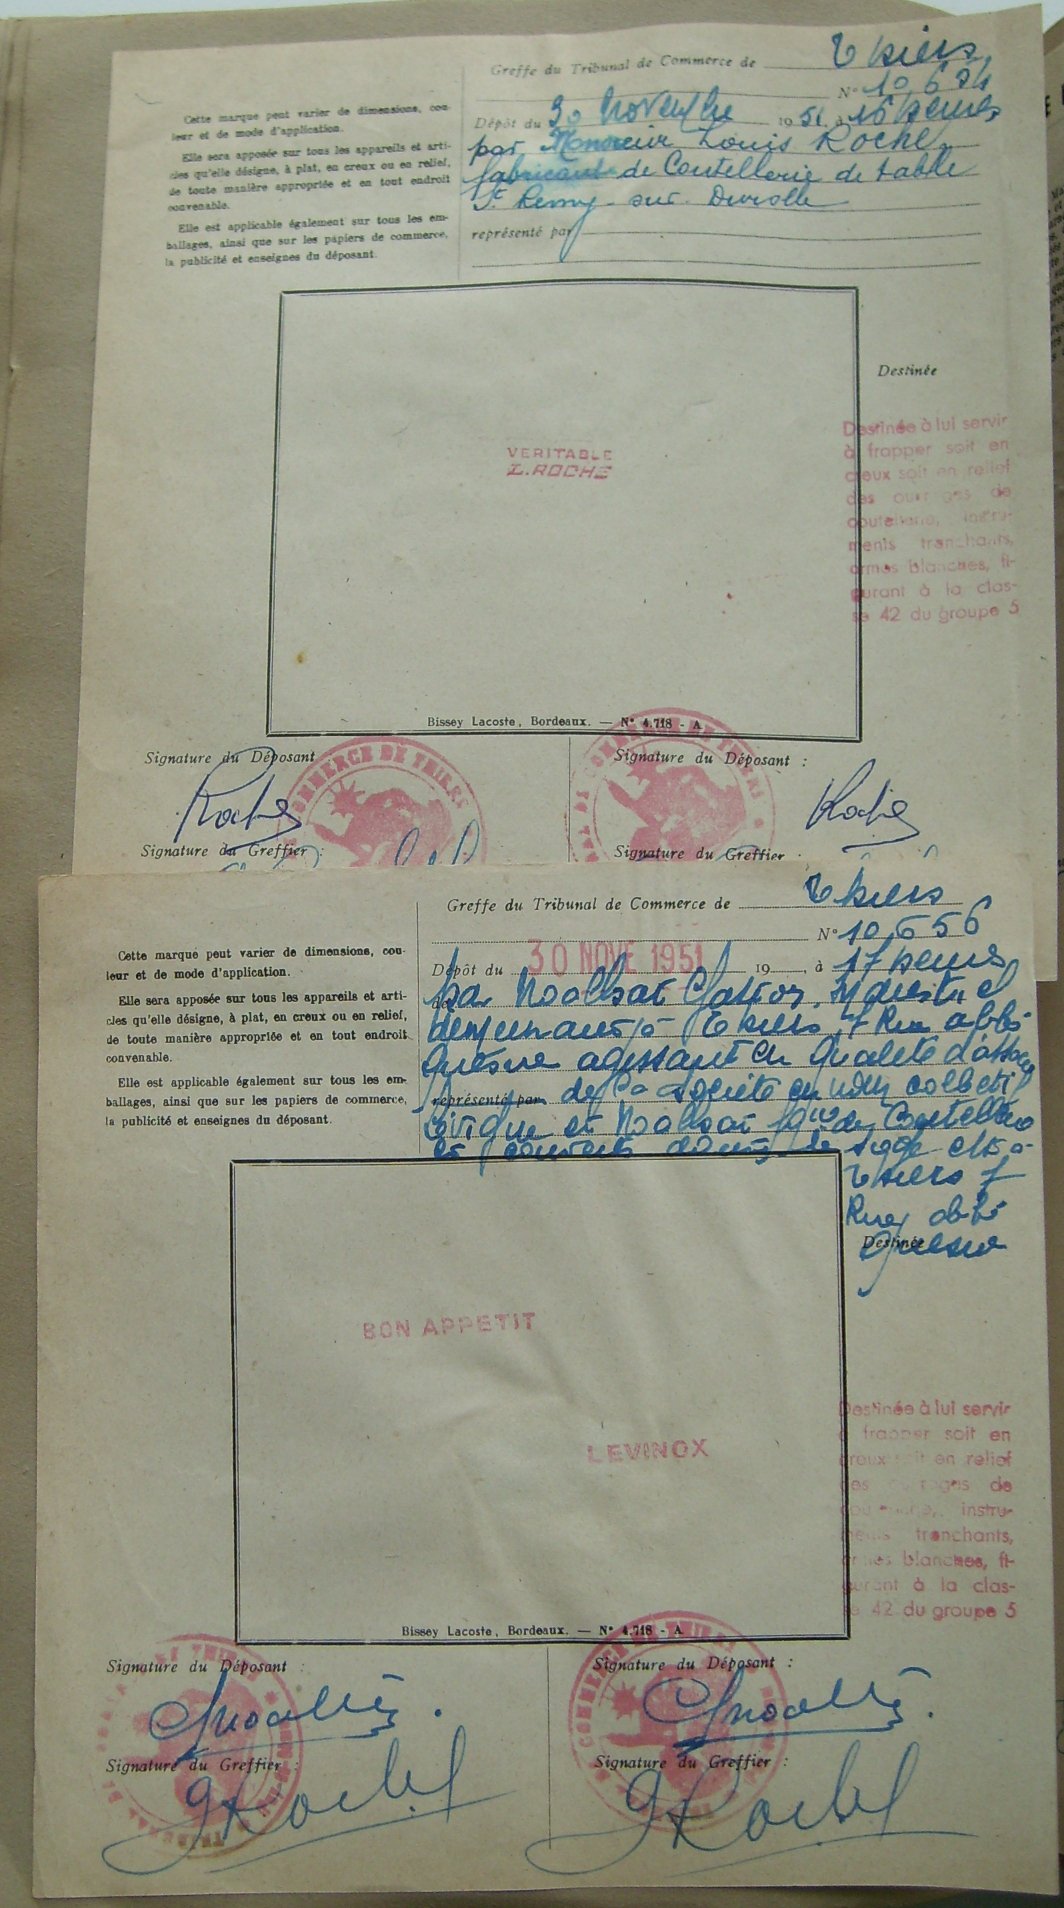 Greffe du Tribunal de Commerce de Thiers
Cette marque peut varier de dimensions, cou-
leur et de mode d'application.
Elle sera apposée sur tous les appareils et arti-
cles qu'elle désigne, à plat, en creux ou en relief,
de toute manière appropriée et en tout endroit
convenable.
Elle est applicable également sur tous les em-
ballages, ainsi que sur les papiers de commerce,
la publicité et enseignes du déposant.
N° 10,6
Dépôt du 30 Novembre 1951, à 16 heures
par Monsieur Louis Roche,
fabricant de Coutellerie de table
St Remy-sur-Durolle
représenté par
Destinée
VERITABLE
L.ROCHE
Destinée à lui servir
à frapper soit en
creux soit en relief
des ouvrages de
coutellerie, instru-
ments tranchants,
armes blanches, fi-
gurant à la clas-
se 42 du groupe 5
Bissey Lacoste, Bordeaux. — N° 4.718 - A
Signature du Déposant
Signature du Déposant :
COMMERCE DE THIERS
DE COMMERCE DE THIERS
Roche
Roche
Signature du Greffier :
Signature du Greffier :
Greffe du Tribunal de Commerce de Thiers
Cette marque peut varier de dimensions, cou-
leur et de mode d'application.
Elle sera apposée sur tous les appareils et arti-
cles qu'elle désigne, à plat, en creux ou en relief,
de toute manière appropriée et en tout endroit
convenable.
Elle est applicable également sur tous les em-
ballages, ainsi que sur les papiers de commerce,
la publicité et enseignes du déposant.
N° 10,656
Dépôt du 30 NOVE 1951 19 , à 17 heures
par Noalhat Gaston,
demeurant à Thiers, 7 Rue abbé
agissant en qualité d'
représenté par de la société en nom collectif
et Noalhat
et couverts dont le siège est à
Thiers 7
Rue abbé
Destinée
BON APPETIT
LEVINOX
Destinée à lui servir
à frapper soit en
creux soit en relief
des ouvrages de
coutellerie, instru-
ments tranchants,
armes blanches, fi-
gurant à la clas-
se 42 du groupe 5
Bissey Lacoste, Bordeaux. — N° 4.718 - A
Signature du Déposant :
Signature du Déposant :
Signature du Greffier :
Signature du Greffier :